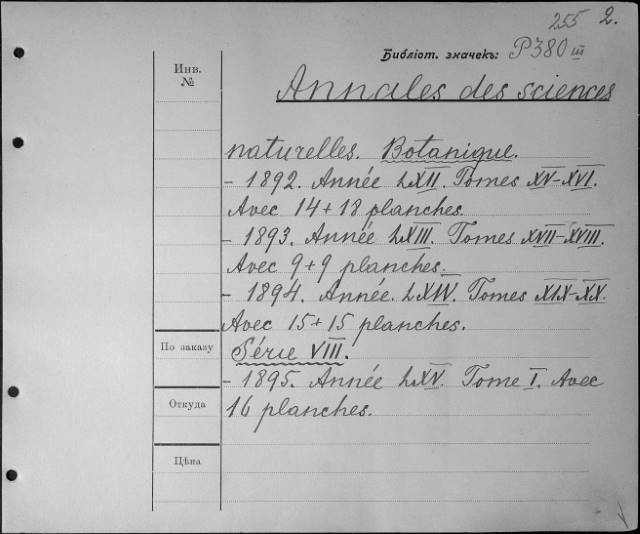 255 2.
Библіот. значекъ: P380 III
Инв.
№
Annales des sciences
naturelles. Botanique.
- 1892. Année LXII. Tomes XV-XVI.
Avec 14+18 planches.
- 1893. Année LXIII. Tomes XVII-XVIII.
Avec 9+9 planches.
- 1894. Année. LXIV. Tomes XIX-XX.
Avec 15+15 planches.
По заказу
Série VIII.
- 1895. Année LXV. Tome I. Avec
Откуда
16 planches.
Цѣна